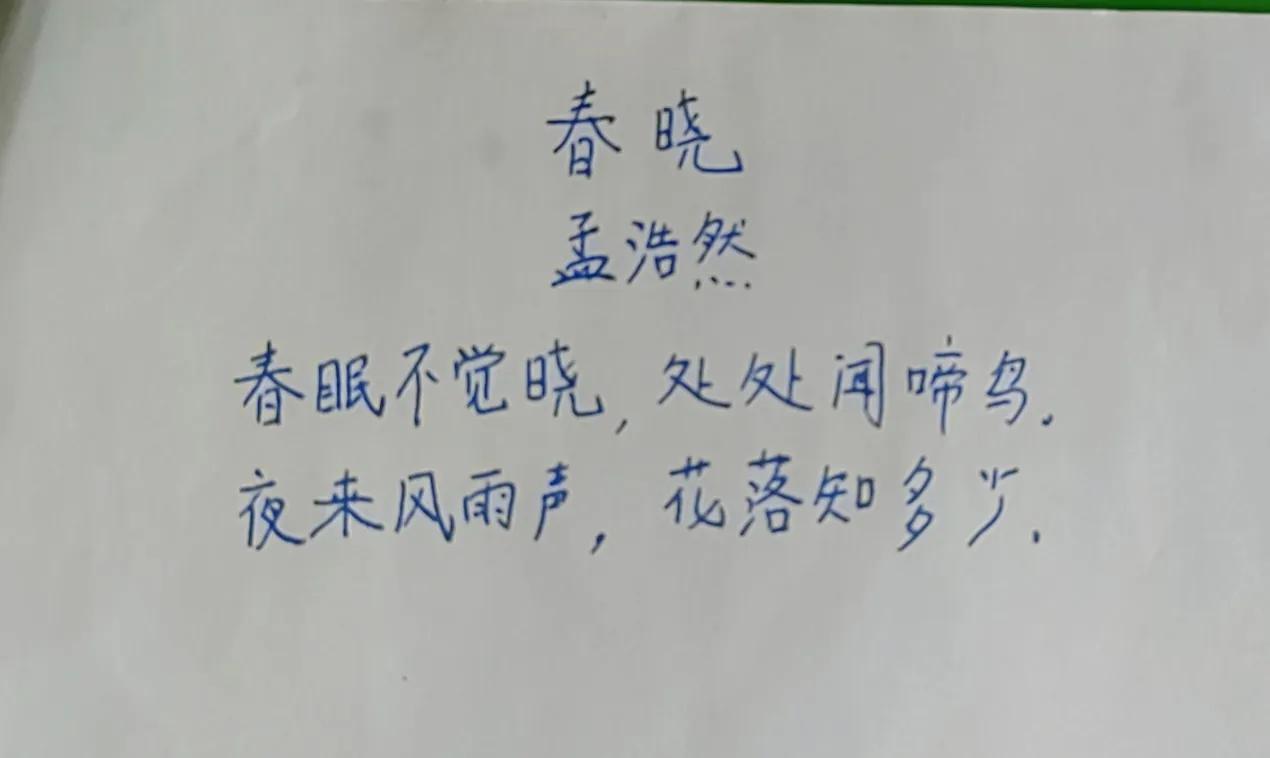 春晓
孟浩然
春眠不觉晓,处处闻啼鸟.
夜来风雨声,花落知多少.